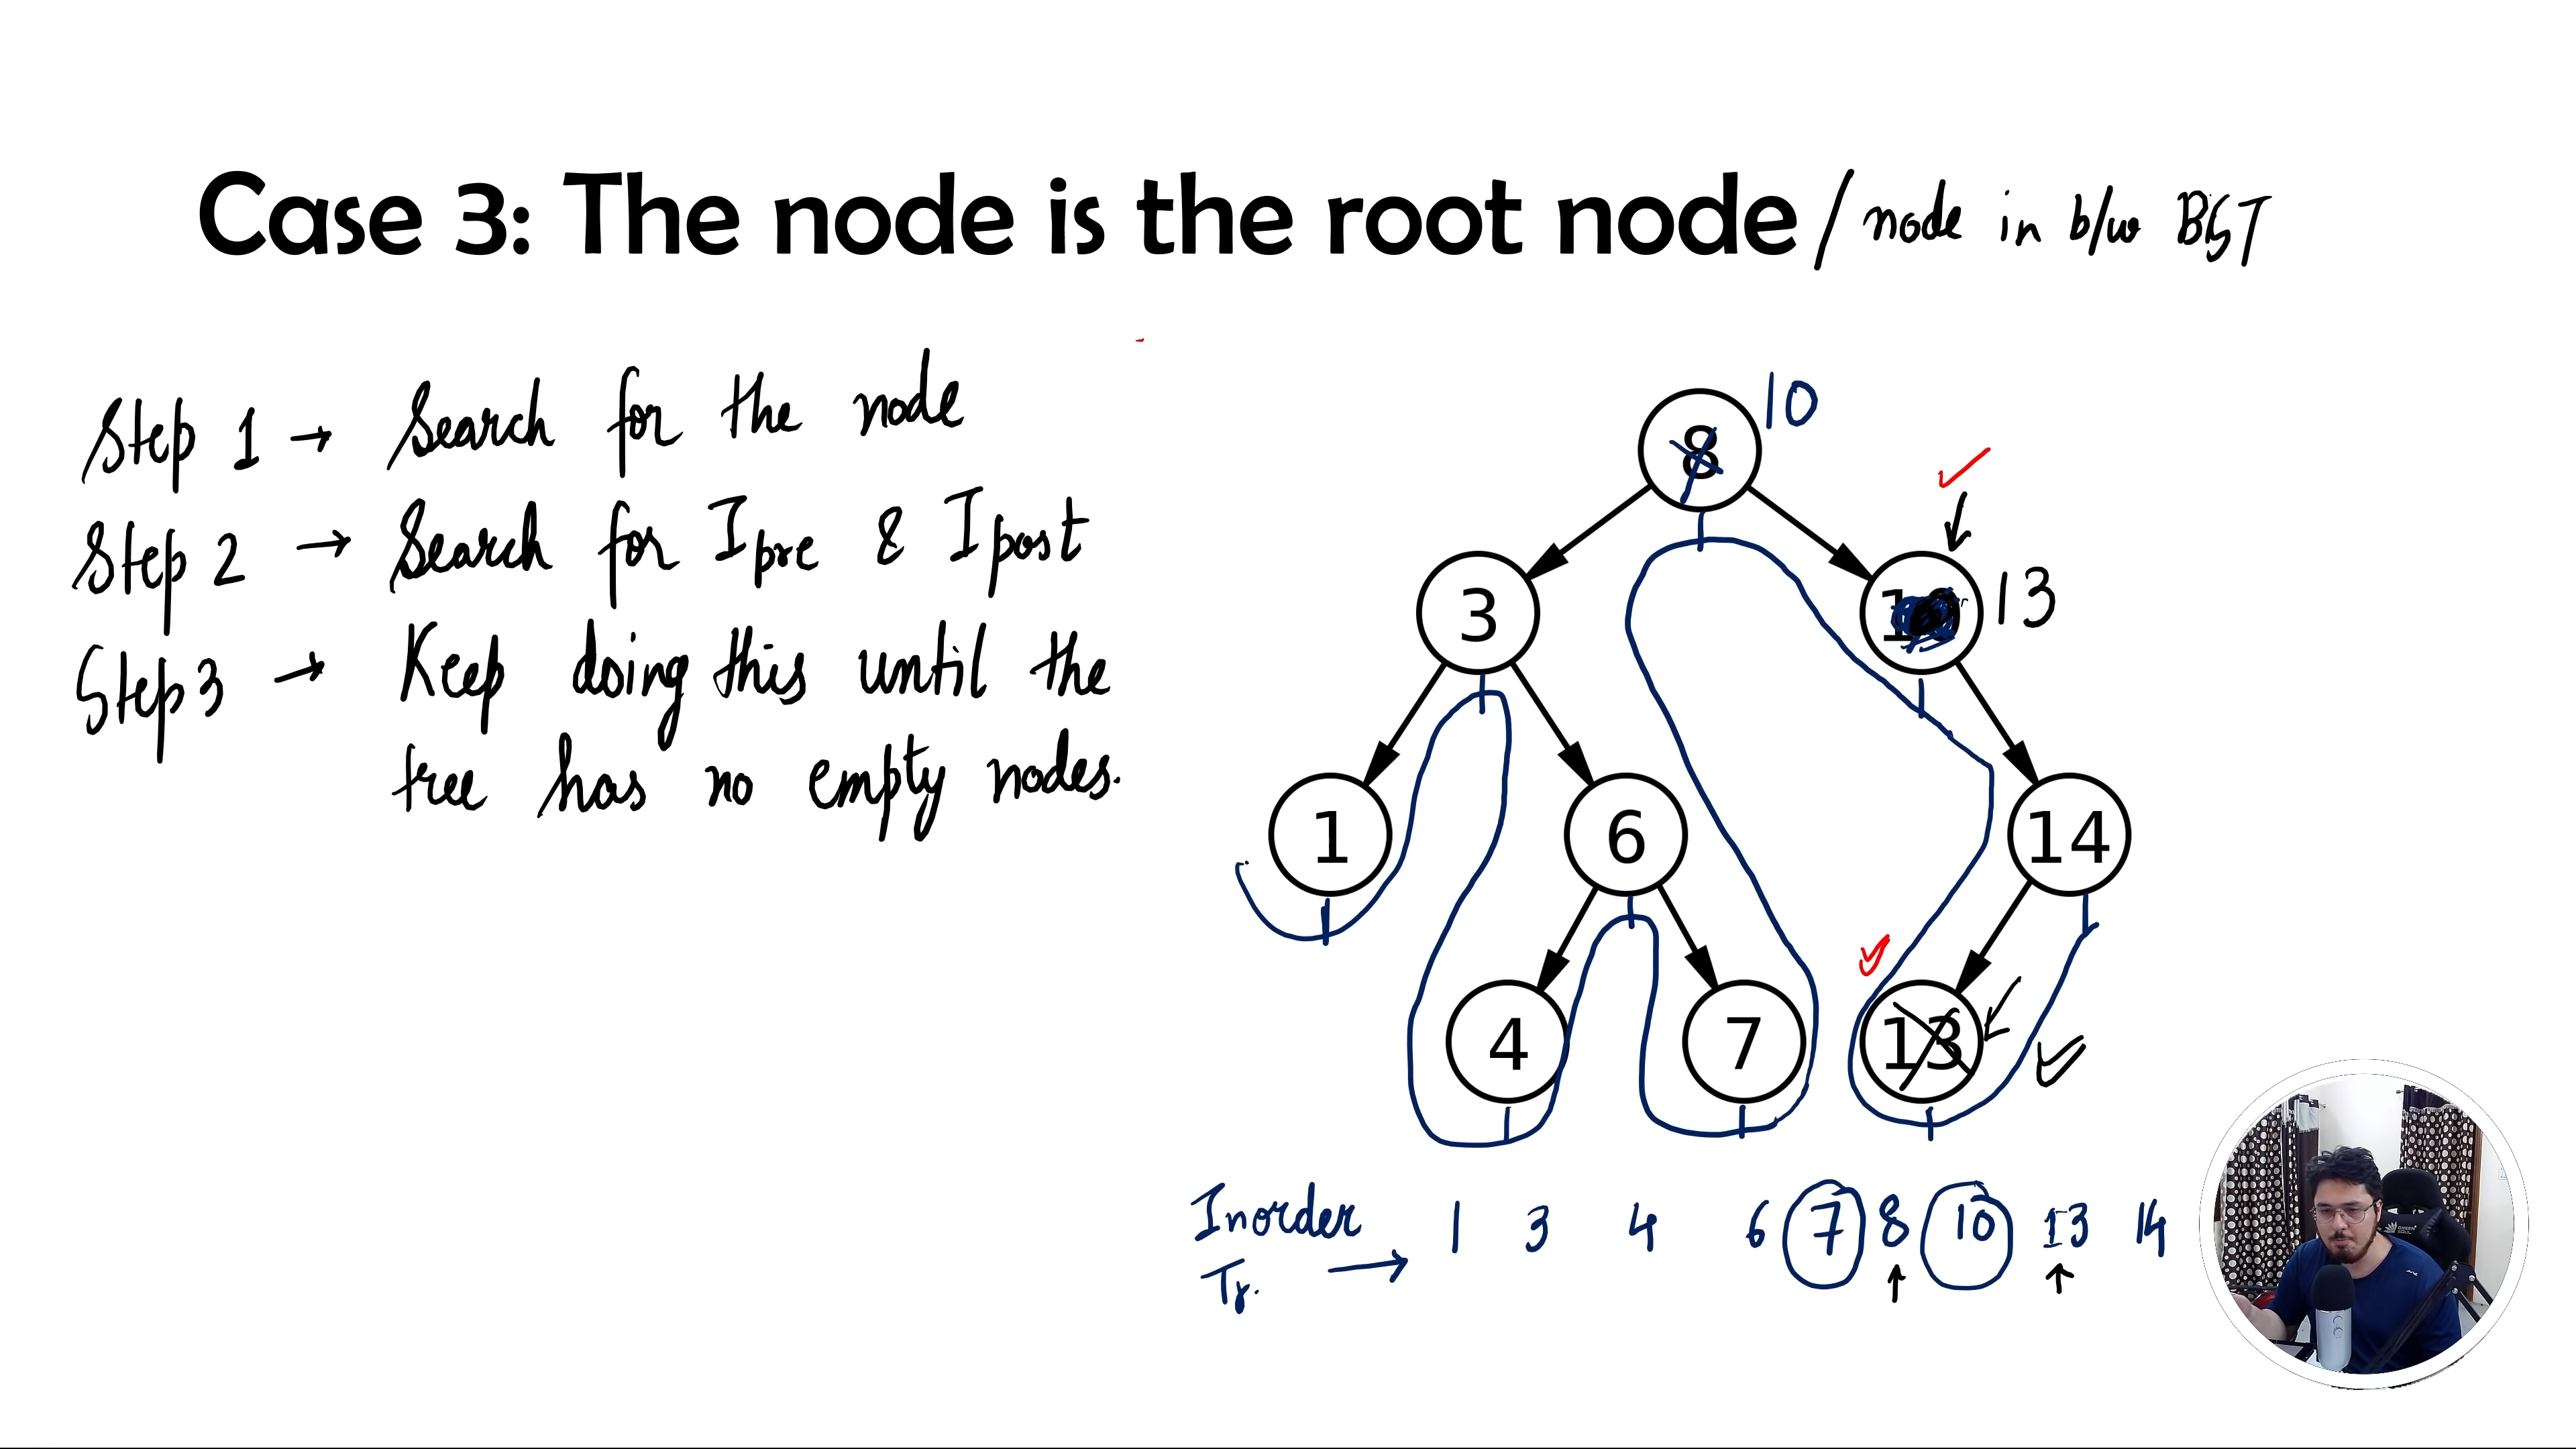 Case 3: The node is the root node / node in b/w BST
Step 1 → Search for the node
Step 2 → Search for Ipre & Ipost
Step 3 → Keep doing this until the
tree has no empty nodes.
8 10
3 10 13
1 6 14
4 7 13
Inorder 1 3 4 6 7 8 10 13 14
Tr. →